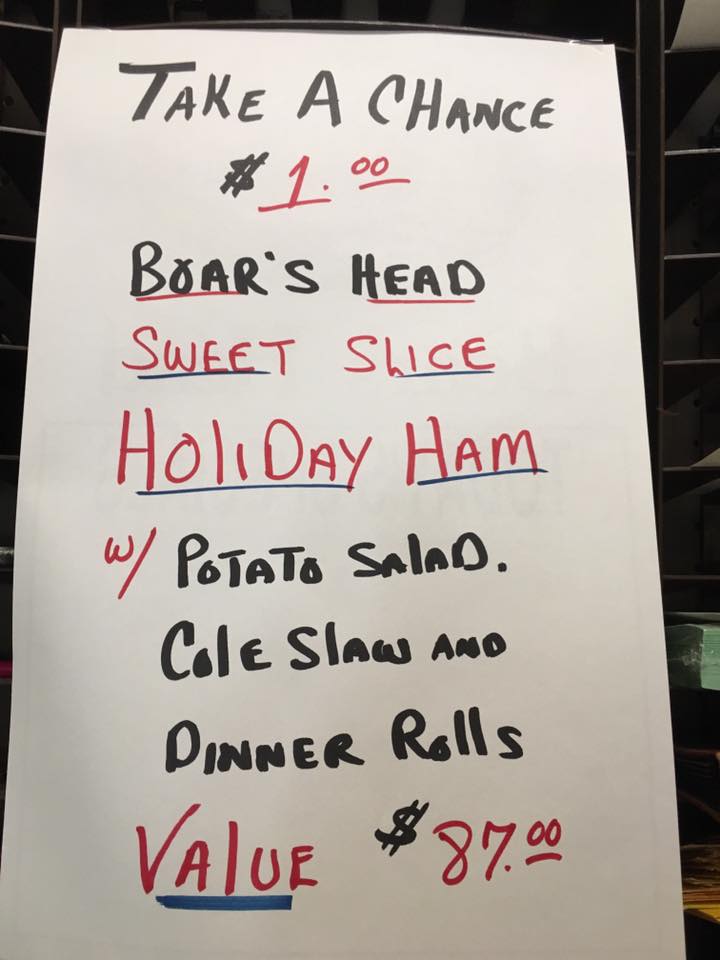 TAKE A CHANCE
$1.00
BOAR'S HEAD
SWEET SLICE
HOLIDAY HAM
w/ POTATO SALAD.
COLE SLAW AND
DINNER ROLLS
VALUE $87.00